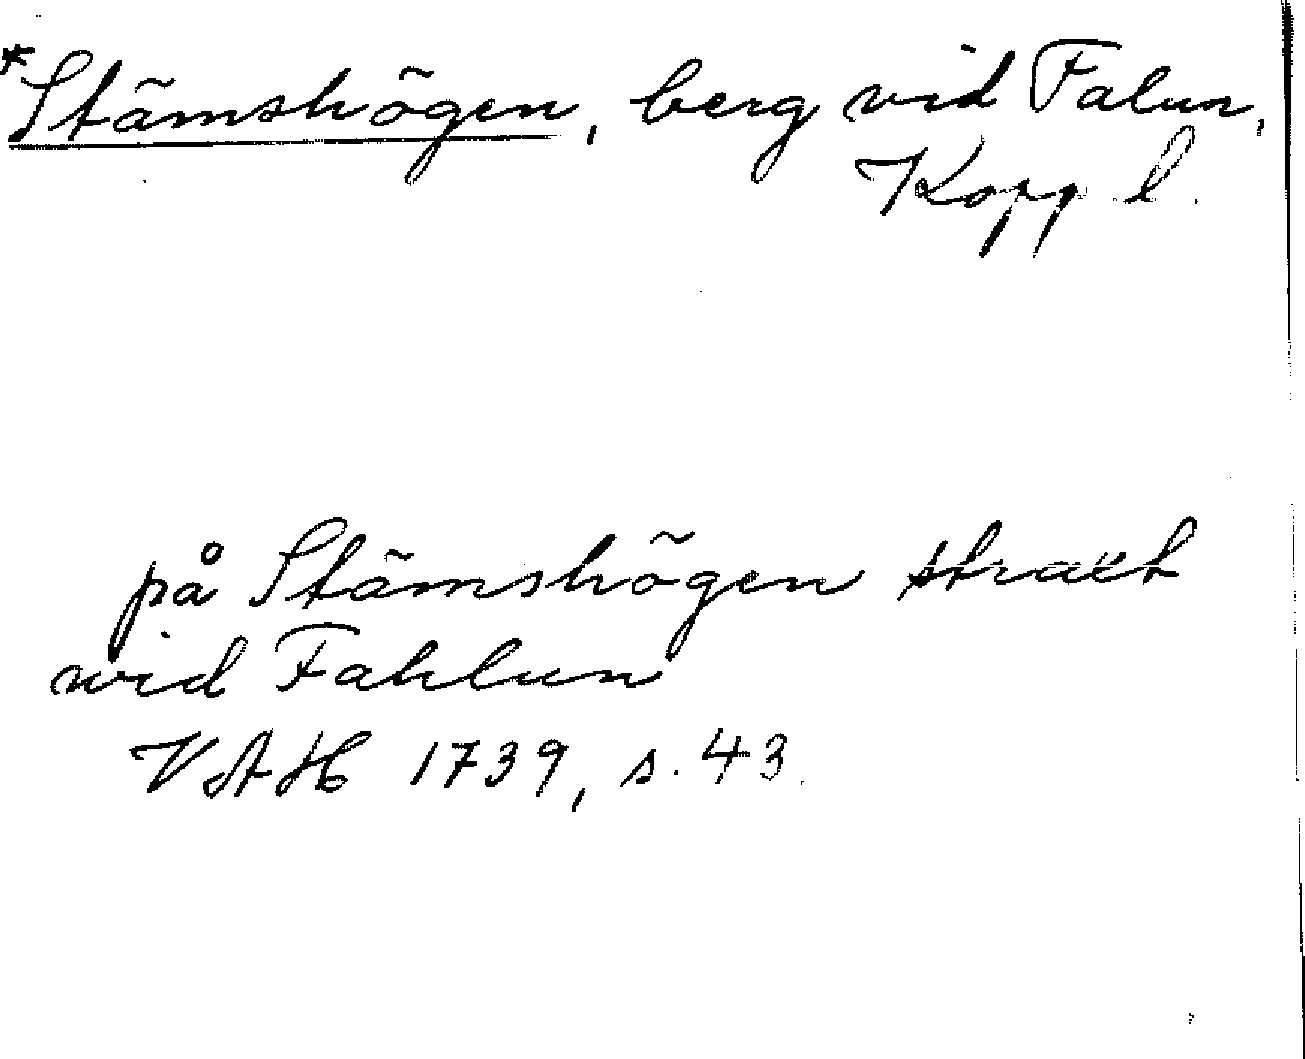 *Stämshögen, berg vid Falun,
Kopp. l.
på Stämshögen straxt
wid Fahlun
VAH 1739, s. 43.